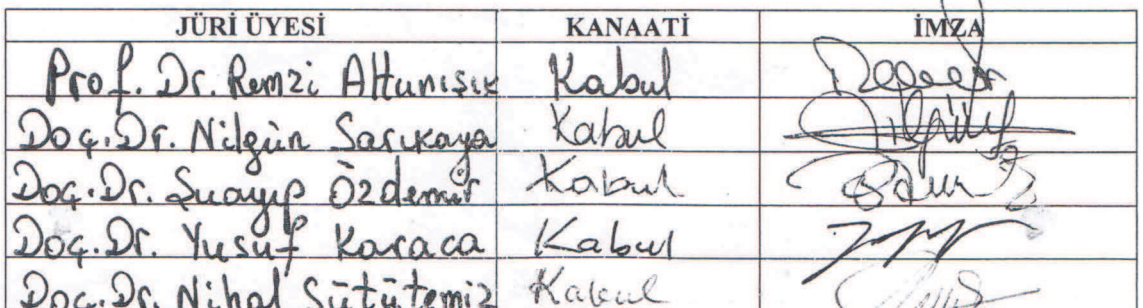 JÜRİ ÜYESİ KANAATİ İMZA
Prof. Dr. Remzi Altunışık Kabul
Doç. Dr. Nilgün Sarıkaya Kabul
Doç. Dr. Şuayıp Özdemir Kabul
Doç. Dr. Yusuf Karaca Kabul
Doç. Dr. Nihal Sütütemiz Kabul